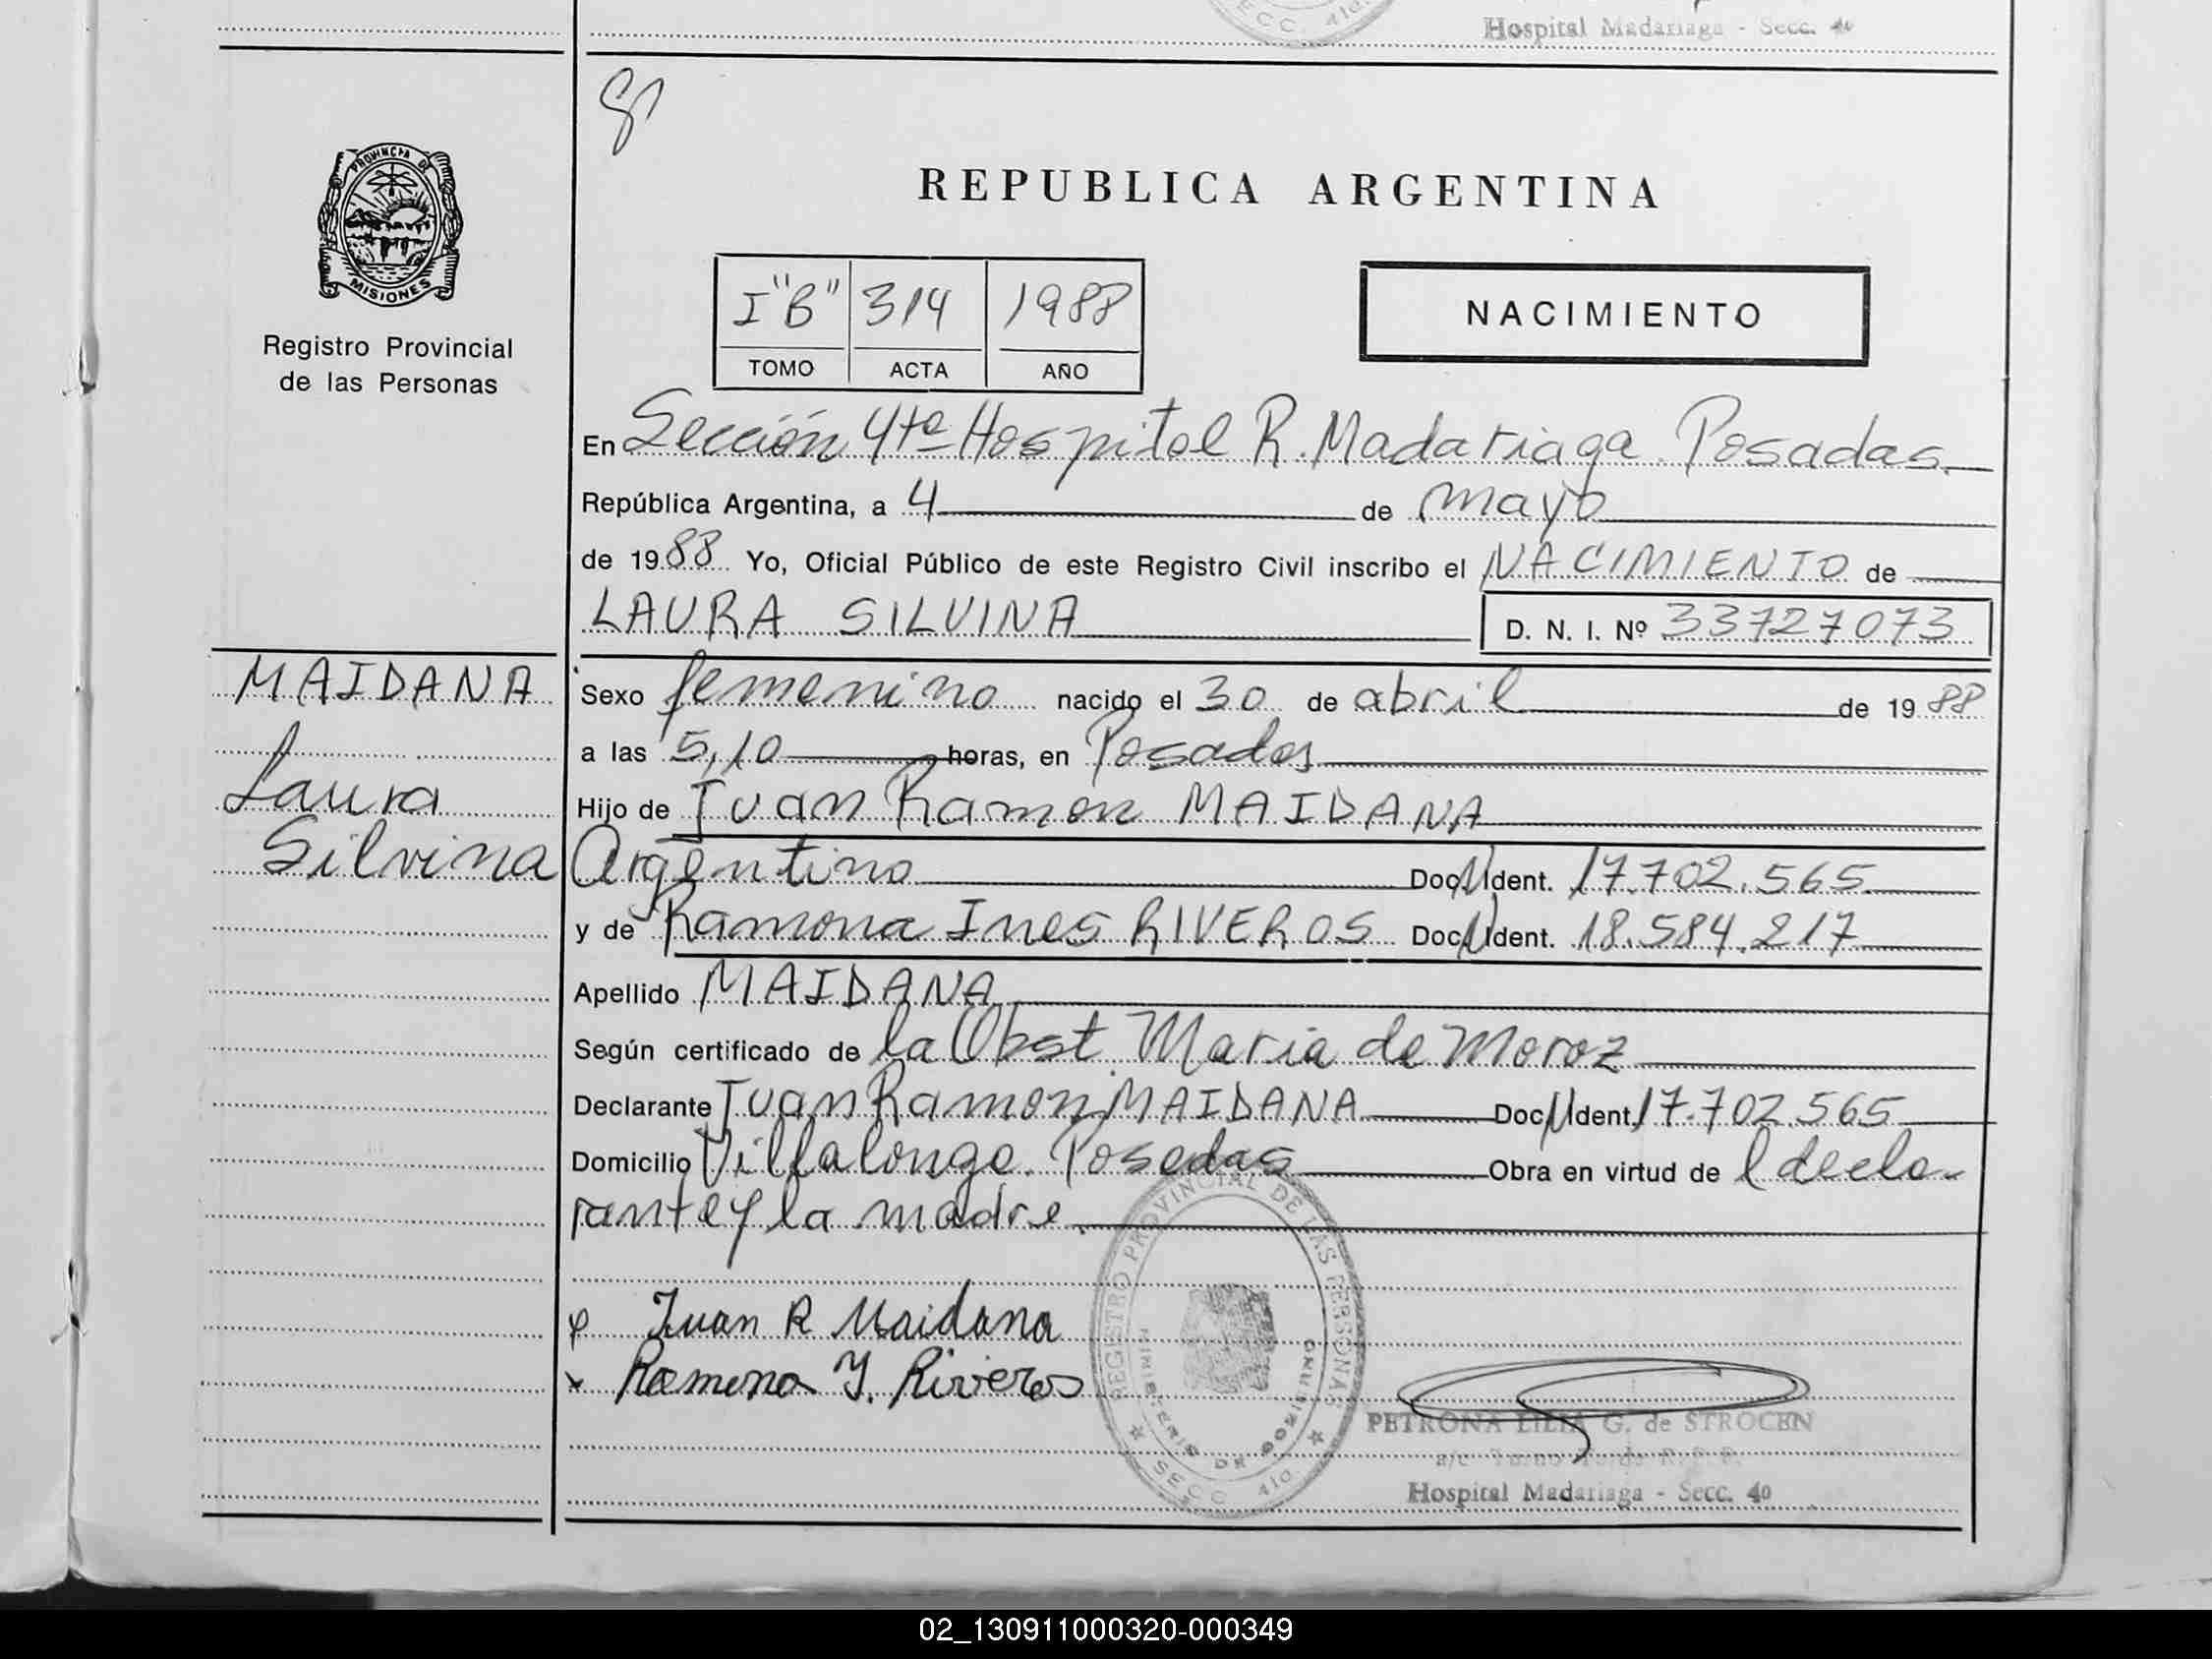 SECC. 4ta.
Hospital Madariaga - Secc. 4o
PROVINCIA DE
MISIONES
Registro Provincial
de las Personas
REPUBLICA ARGENTINA
I "B" 314 1988
TOMO ACTA AÑO
NACIMIENTO
En Sección 4ta Hospital R. Madariaga Posadas
República Argentina, a 4 de mayo
de 1988 Yo, Oficial Público de este Registro Civil inscribo el NACIMIENTO de
LAURA SILVINA D. N. I. Nº 33727073
MAIDANA
Laura
Silvina
Sexo femenino nacido el 30 de abril de 1988
a las 5,10 horas, en Posadas
Hijo de Juan Ramon MAIDANA
Argentino Doc. N. Ident. 17.702.565
y de Ramona Ines RIVEROS Doc. N. Ident. 18.584.217
Apellido MAIDANA
Según certificado de la Obst. Maria de Moroz
Declarante Juan Ramon MAIDANA Doc. N. Ident. 17.702.565
Domicilio Villalonga. Posadas Obra en virtud de l decla-
rante y la madre.
Juan R Maidana
Ramona Y. Riveros
REGISTRO PROVINCIAL DE LAS PERSONAS
MINISTERIO DE GOBIERNO
SECC 4ta.
PETRONA LILIA G. de STROCEN
Hospital Madariaga - Secc. 4o
02_130911000320-000349